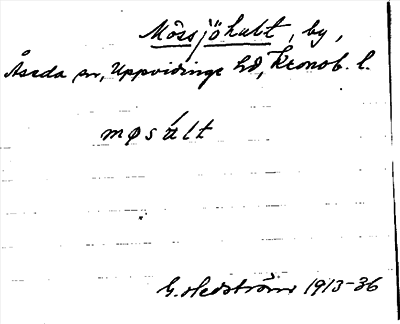 Mössjöhult, by,
Åseda sn, Uppvidinge hd, Kronob. l.
møsált
G. Hedström 1913-36